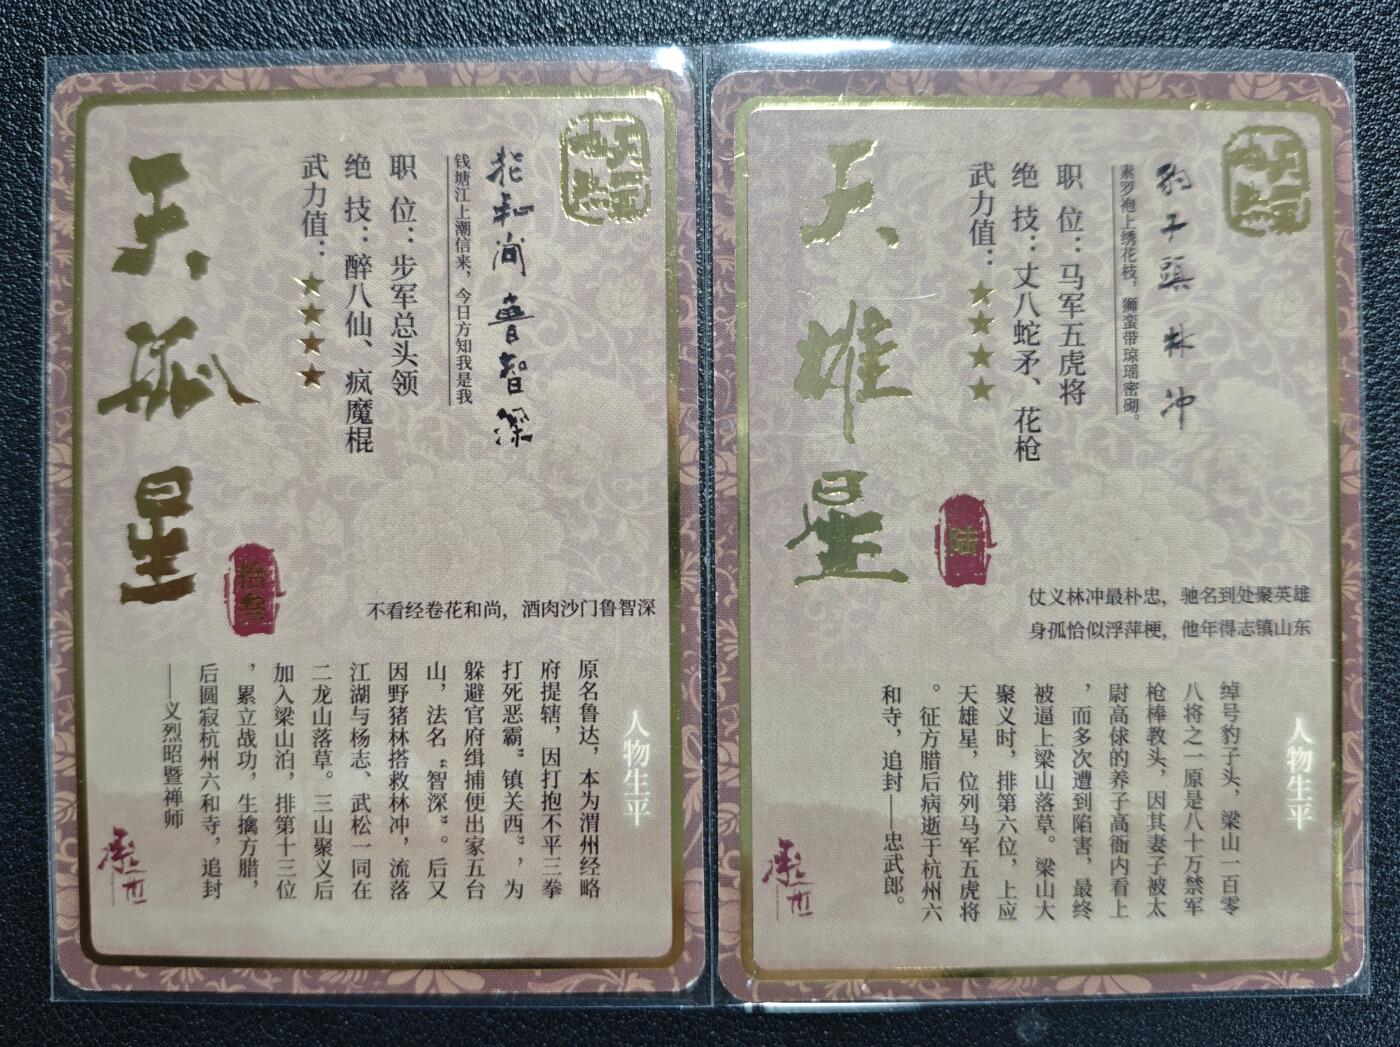 天孤星
拾叁
花和尚 鲁智深
钱塘江上潮信来，今日方知我是我
职 位：步军总头领
绝 技：醉八仙、疯魔棍
武力值：★★★★
不看经卷花和尚，酒肉沙门鲁智深
人物生平
原名鲁达，本为渭州经略
府提辖，因打抱不平三拳
打死恶霸"镇关西"，为
躲避官府缉捕便出家五台
山，法名"智深"。后又
因野猪林搭救林冲，流落
江湖与杨志、武松一同在
二龙山落草。三山聚义后
加入梁山泊，排第十三位
，累立战功，生擒方腊，
后圆寂杭州六和寺，追封
——义烈昭暨禅师
承世
天雄星
陆
豹子頭 林冲
素罗袍上绣花枝，狮蛮带琼瑶密砌。
职 位：马军五虎将
绝 技：丈八蛇矛、花枪
武力值：★★★★
仗义林冲最朴忠，驰名到处聚英雄
身孤恰似浮萍梗，他年得志镇山东
人物生平
绰号豹子头，梁山一百零
八将之一原是八十万禁军
枪棒教头，因其妻子被太
尉高俅的养子高衙内看上
，而多次遭到陷害，最终
被逼上梁山落草。梁山大
聚义时，排第六位，上应
天雄星，位列马军五虎将
。征方腊后病逝于杭州六
和寺，追封——忠武郎。
承世